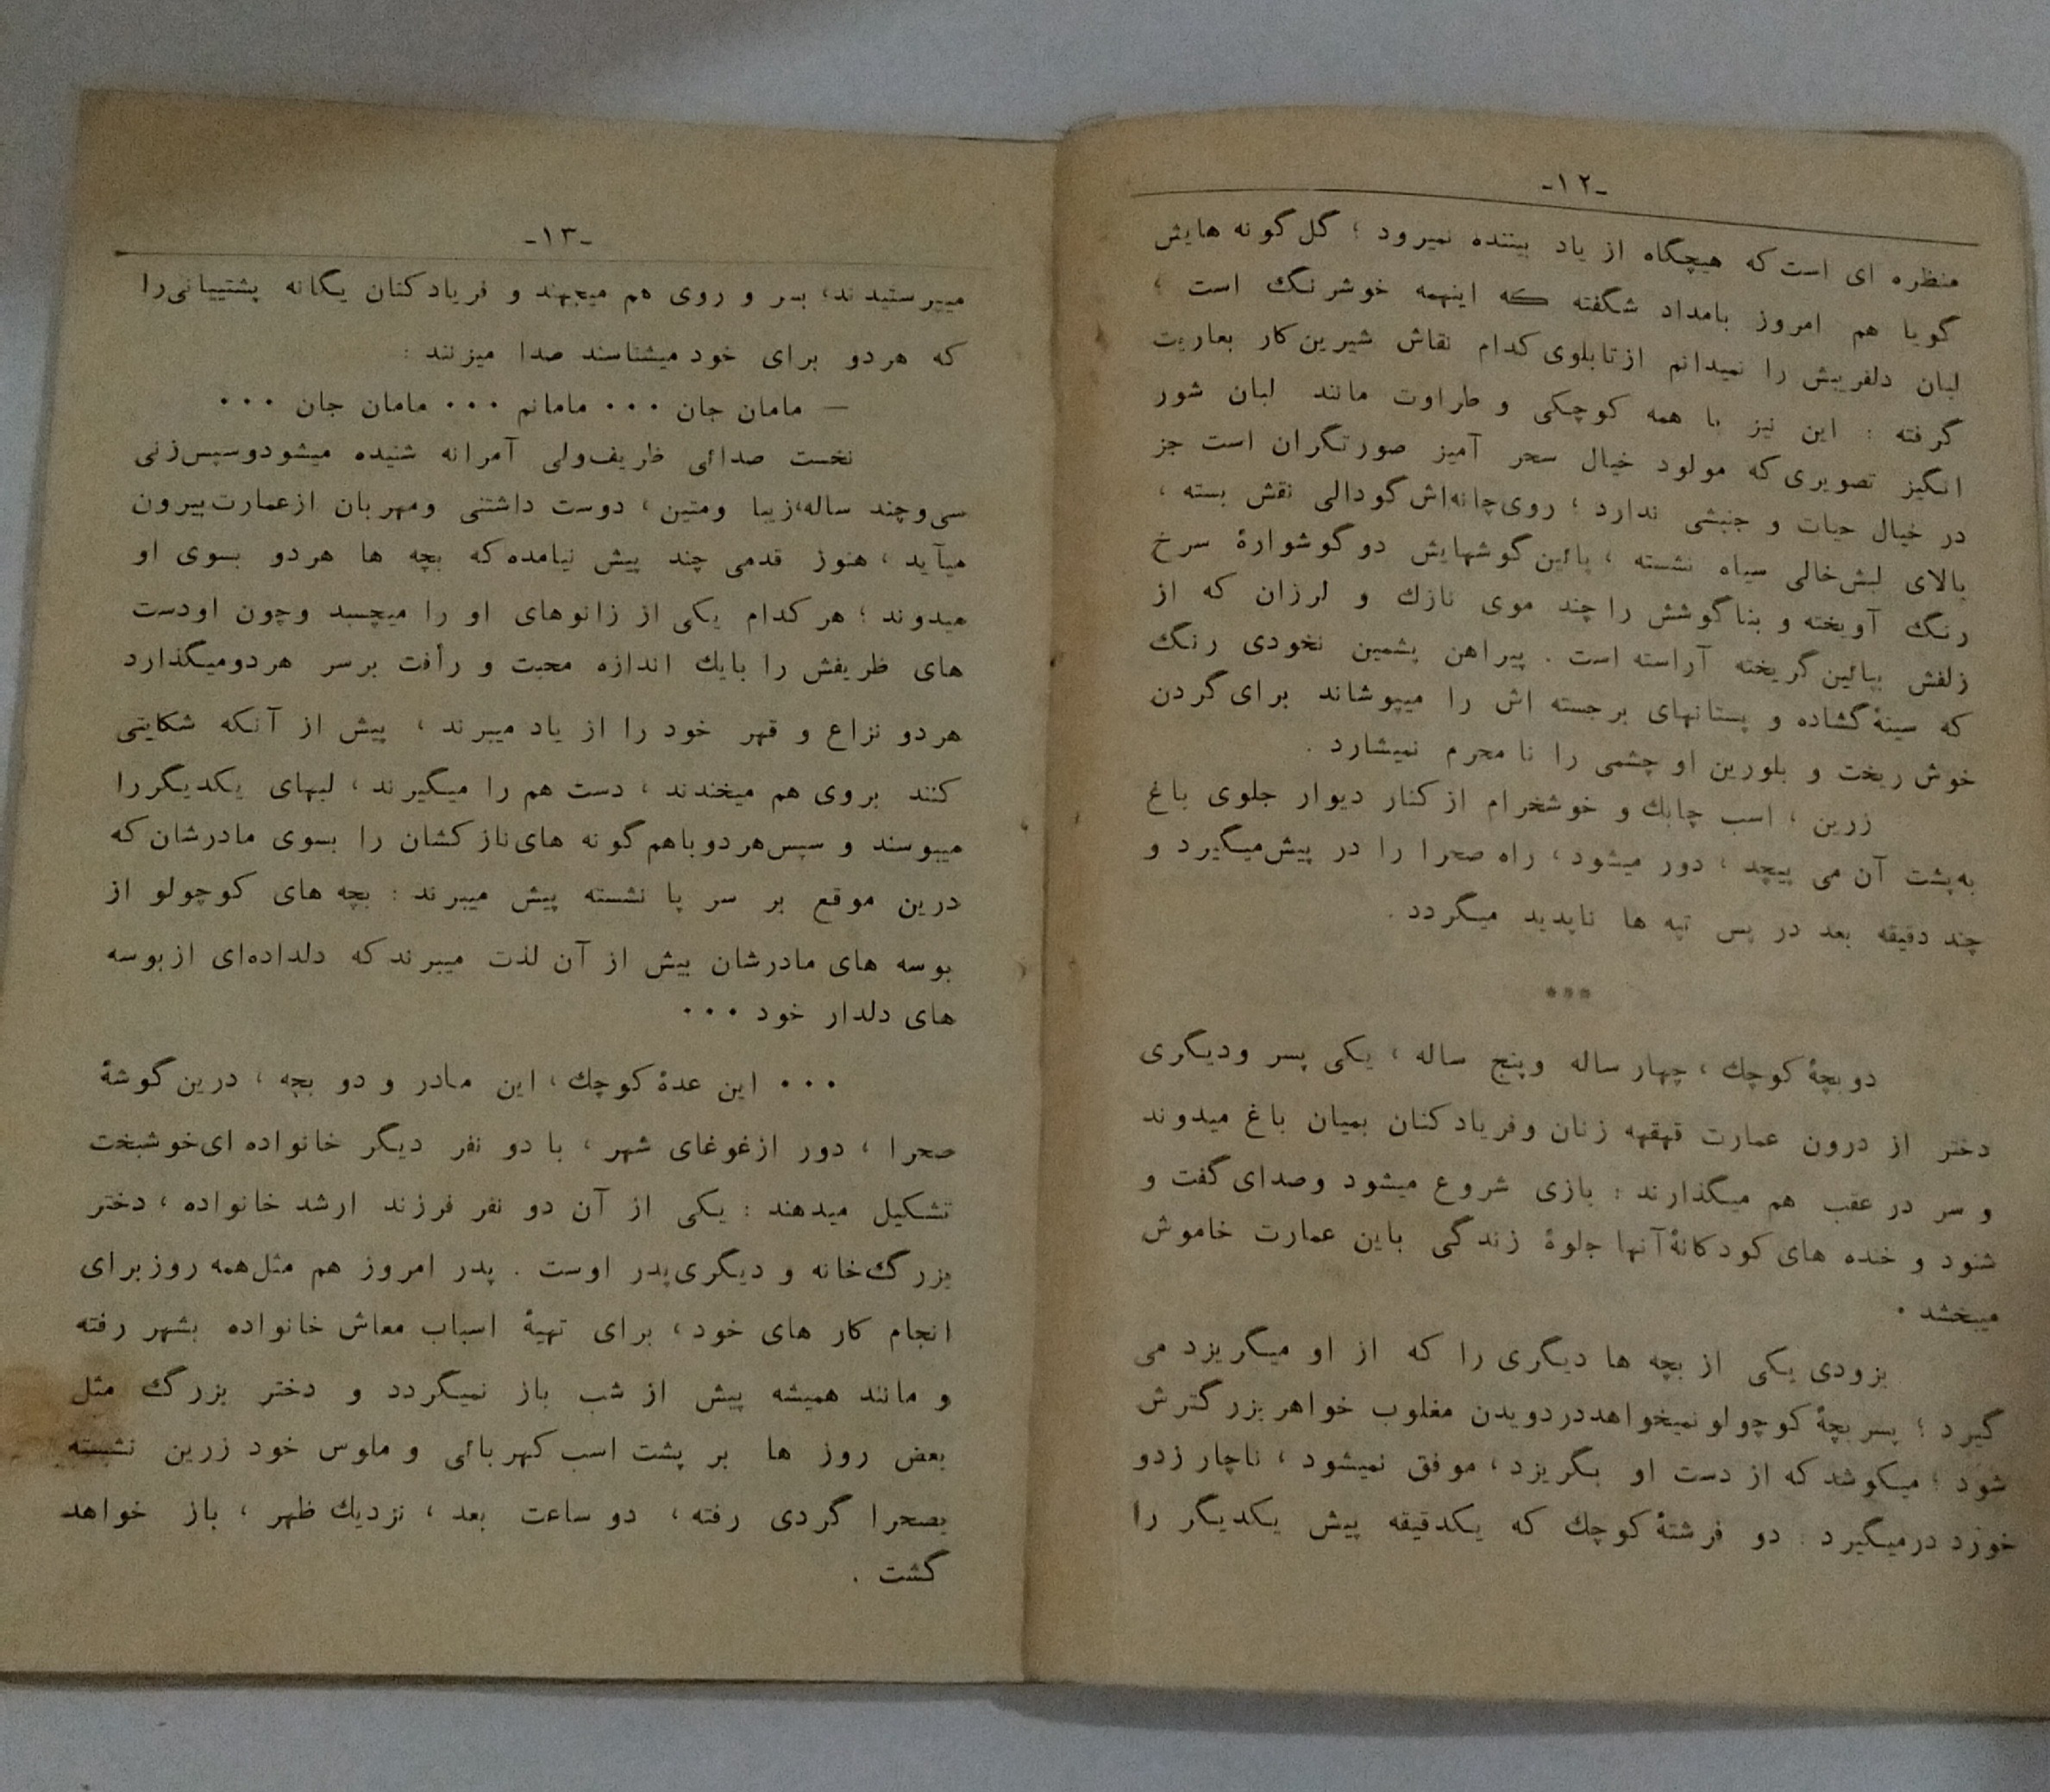 -۱۲-
منظره ای است که هیچگاه از یاد بیننده نمیرود ؛ گل گونه هایش
گویا هم امروز بامداد شگفته که اینهمه خوشرنگ است ؛
لبان دلفریبش را نمیدانم از تابلوی کدام نقاش شیرین کار بعاریت
گرفته : این نیز با همه کوچکی و طراوت مانند لبان شور
انگیز تصویری که مولود خیال سحر آمیز صورتگران است جز
در خیال حیات و جنبشی ندارد ؛ روی چانه‌اش گودالی نقش بسته ،
بالای لبش خالی سیاه نشسته ، پائین گوشهایش دو گوشوارهٔ سرخ
رنگ آویخته و بناگوشش را چند موی نازك و لرزان که از
زلفش بپائین گریخته آراسته است . پیراهن پشمین نخودی رنگ
که سینهٔ گشاده و پستانهای برجسته اش را میپوشاند برای گردن
خوش ریخت و بلورین او چشمی را نا محرم نمیشارد .
زرین ، اسب چابك و خوشخرام از کنار دیوار جلوی باغ
به‌پشت آن می پیچد ، دور میشود ، راه صحرا را در پیش میگیرد و
چند دقیقه بعد در پس تپه ها ناپدید میگردد .
***
دو بچهٔ کوچك ، چهار ساله وپنج ساله ، یکی پسر ودیگری
دختر از درون عمارت قهقهه زنان وفریاد کنان بمیان باغ میدوند
و سر در عقب هم میگذارند : بازی شروع میشود وصدای گفت و
شنود و خنده های کودکانهٔ آنها جلوهٔ زندگی باین عمارت خاموش
میبخشد .
بزودی یکی از بچه ها دیگری را که از او میگریزد می
گیرد ؛ پسر بچهٔ کوچولو نمیخواهد در دویدن مغلوب خواهر بزرگترش
شود ؛ میکوشد که از دست او بگریزد ، موفق نمیشود ، ناچار زدو
خورد درمیگیرد : دو فرشتهٔ کوچك که یکدقیقه پیش یکدیگر را
-۱۳-
میپرستیدند، بسر و روی هم میجهند و فریاد کنان یگانه پشتیبانی‌را
که هر دو برای خود میشناسند صدا میزنند :
— مامان جان ... مامانم ... مامان جان ...
نخست صدائی ظریف‌ولی آمرانه شنیده میشودوسپس‌زنی
سی‌وچند ساله،زیبا ومتین ، دوست داشتنی ومهربان ازعمارت‌بیرون
میآید ، هنوز قدمی چند پیش نیامده که بچه ها هردو بسوی او
میدوند ؛ هر کدام یکی از زانوهای او را میچسبد وچون اودست
های ظریفش را بایك اندازه محبت و رأفت برسر هردومیگذارد
هردو نزاع و قهر خود را از یاد میبرند ، پیش از آنکه شکایتی
کنند بروی هم میخندند ، دست هم را میگیرند ، لبهای یکدیگررا
میبوسند و سپس هردوباهم گونه های ناز کشان را بسوی مادرشان که
درین موقع بر سر پا نشسته پیش میبرند : بچه های کوچولو از
بوسه های مادرشان بیش از آن لذت میبرند که دلداده‌ای ازبوسه
های دلدار خود ...
... این عدهٔ کوچك ، این مادر و دو بچه ، درین گوشهٔ
صحرا ، دور ازغوغای شهر ، با دو نفر دیگر خانواده ای‌خوشبخت
تشکیل میدهند : یکی از آن دو نفر فرزند ارشد خانواده ، دختر
بزرگ‌خانه و دیگری‌پدر اوست . پدر امروز هم مثل‌همه روزبرای
انجام کار های خود ، برای تهیهٔ اسباب معاش خانواده بشهر رفته
و مانند همیشه پیش از شب باز نمیگردد و دختر بزرگ مثل
بعض روز ها بر پشت اسب کهربائی و ملوس خود زرین نشسته
بصحرا گردی رفته ، دو ساعت بعد ، نزدیك ظهر ، باز خواهد
گشت .